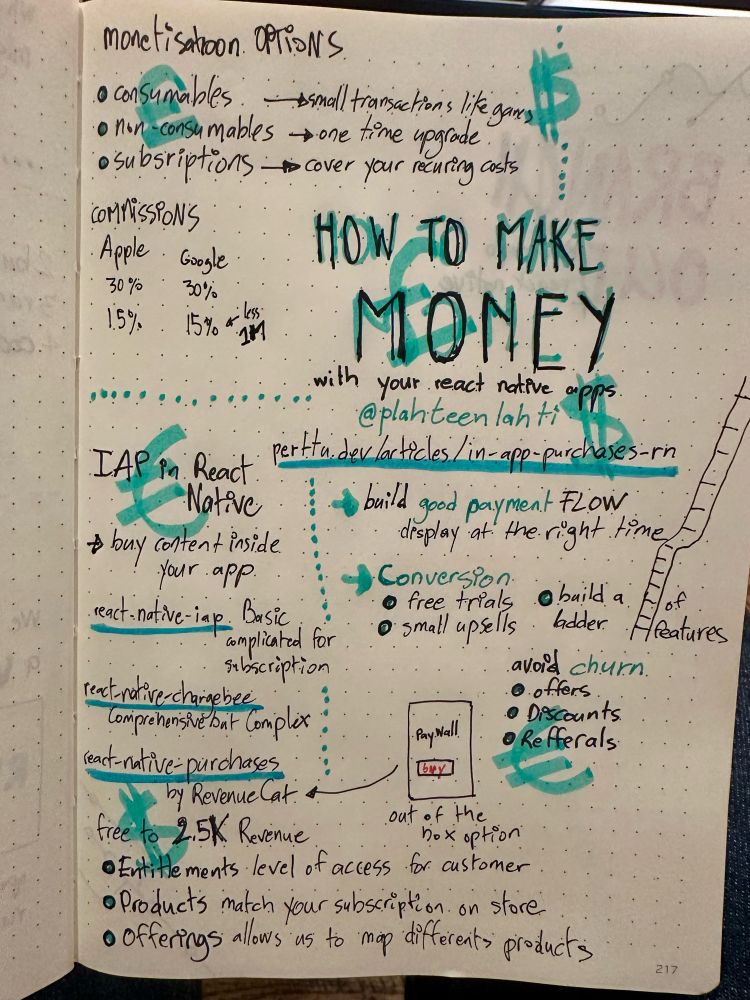 monetisatoon OPTIONS
consumables → small transactions like games
non-consumables → one time upgrade
subsriptions → cover your recuring costs
COMMISSIONS
Apple Google
30% 30%
15% 15% ← less 1M
HOW TO MAKE
MONEY
with your react native apps
@plahteenlahti
perttu.dev/articles/in-app-purchases-rn
IAP in React
Native
→ buy content inside
your app
react-native-iap Basic
complicated for
subscription
react-native-chargebee
Comprehensive but Complex
react-native-purchases
by RevenueCat
free to 2.5K Revenue
→ build good payment FLOW
display at the right time
→ Conversion
free trials
small upsells
build a
ladder
of
features
avoid churn
offers
Discounts
Refferals
PayWall
buy
out of the
box option
Entitlements level of access for customer
Products match your subscription on store
Offerings allows us to map differents products
217